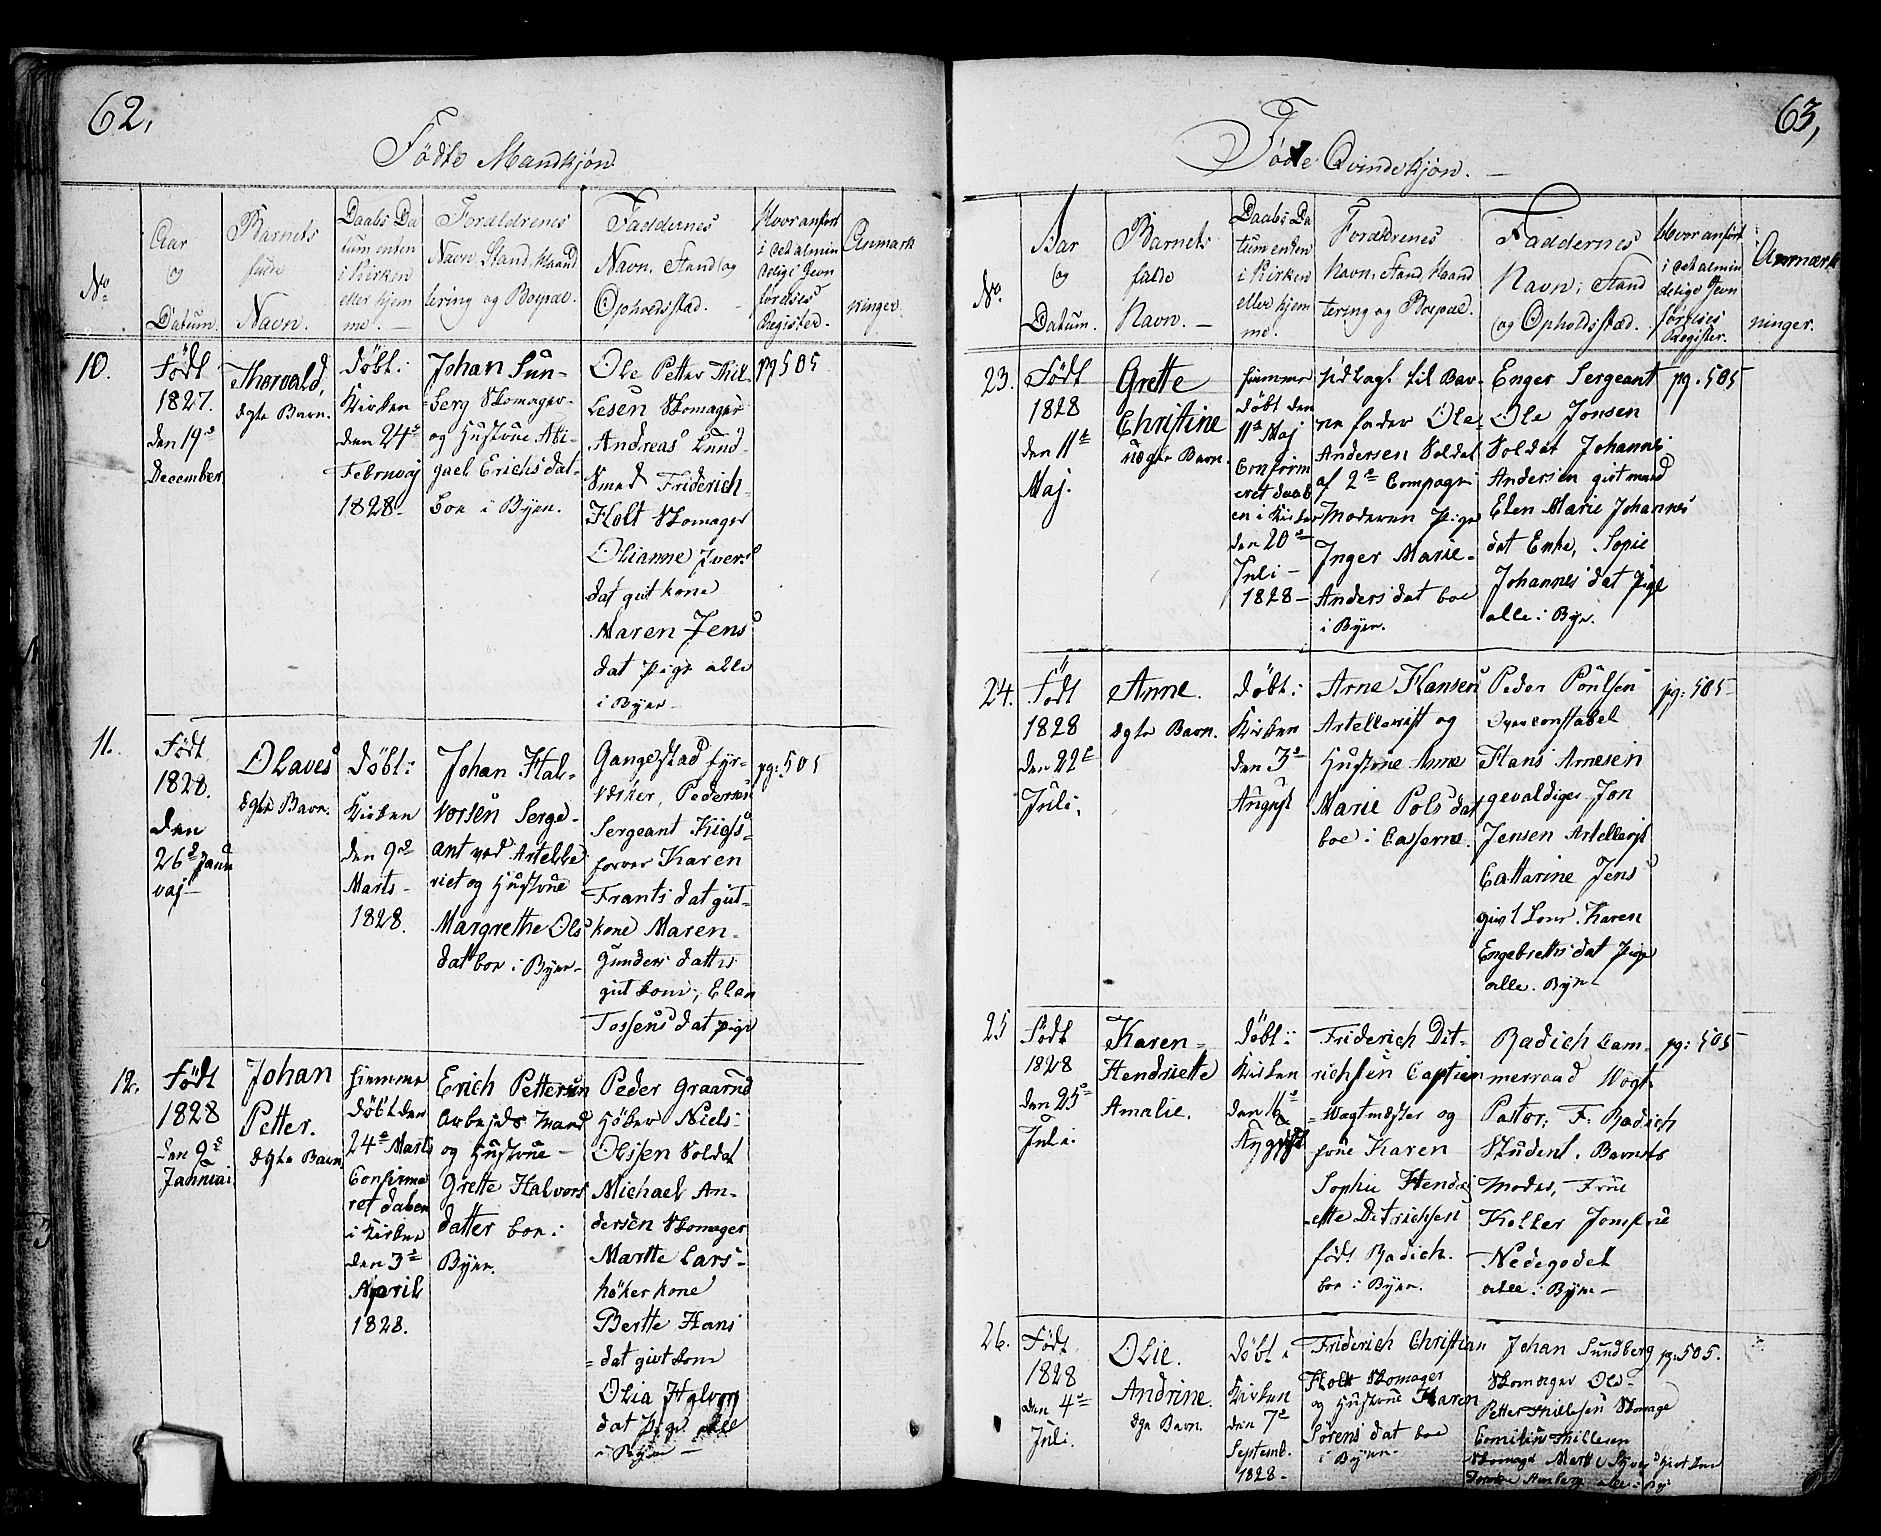 62.
Födte Mandkjøn
No.
Aar
og
Datum.
Barnets
fulde
Navn.
Daabs Da
tum enten
i Kirken
eller hjem
me. —
Forældrenes
Navn, Stand, Haand
tering og Bopæl.
Faddernes
Navn, Stand og
Opholdsstad. -
Hvor anført
i det almin
delige Jevn
førelses
Register.
Anmærk
ninger.
10.
Födt
1827.
den 19de
December
Thorvald,
Ægte Barn.
döbt i
Kirken
den 24de
Februarj
1828-
Johan Sun-
berg Skomager
og Hustrue Abi-
gael Erichsdat-
boe i Byen.
Ole Petter Thil-
lesen Skomager
Andreas Lund
Smed Friderich
Holt Skomager
Olianne Ivers
dat gift kone
Maren Jens
dat pige alle
i Byen-
pg 505
11.
Födt
1828.
den
26de Janu
uarj-
Olaves
Ægte Barn.
Döbt i
Kirken
den 9de
Marts-
1828.
Johan Hal-
vorsen Serge-
ant ved Artelle
riet og Hustrue
Margrethe Ols
dat boe i Byen-
Gangestad fyr-
værker, Pedersen
Sergeant
Karen
Frants dat gift-
kone Maren-
Gunders datter
gift kone, Elen
Tossens dat pige
pg: 505
12.
Födt
1828
den 9de
Januari.
Johan
Petter.
Ægte Barn
hjemme
döbt den
24de Marts
Confirme
ret daaben
i Kirken
den 3de
April
1828.
Erich Pettersen
Arbejds Mand
og Hustrue-
Grette Halvors
datter boe i
Byen.
Peder Graarud
Höker Niels
Olssen Soldat
Michael An-
dersen Skomager
Marthe Lars-
höker kone
Berthe Hans
dat givt kone
Olia Halvors
dat Pige alle
i Byen -
63,
Födte Qvindekjøn. —
No.
Aar
og
Datum.
Barnets
fulde
Navn. —
Daabs Da
tum enten
i Kirken
eller hjem
me.
Forældrenes
Navn, Stand, Haand
tering og Bopæl.
Faddernes
Navn, Stand
og Opholdsstæd.
Hvor anført
i det almin
delige Jevn
førelses
Register.
Anmærk
ninger.
23.
Födt
1828
den 11te
Maj.
Grette
Christine
Uægte Barn.
hjemme
döbt den
11te Maj
Confirm
eret daab
en i Kirken
den 20de
Juli-
1828-
Udlagt til Bar-
ne fader Ole
Andersen Soldat
af 2de Compagi
Moderen pige
Inger Marie-
Anders dat boe
i Byen.
Enger Sergeant
Ole Jonsen
Soldat Johannes
Andersen gift mand
Elen Marie Johannes
dat Enke, Sopie
Johannes dat pige
alle i Byen.
pg: 505
24.
Födt
1828
den 22de
Juli,
Anne.
Ægte Barn.
döbt i
Kirken
den 3de
August
Arne Hansen
Artellerist og
Hustrue Anne
Marie Pols dat
boe i Casserne.
Peder Poulsen
Overconstabel
Hans Arnesen
gevaldiger Jon
Jensen Artellerist
Cattarine Jens
givt kone. Karen
Engebretts dat pige
alle. Byen
pg: 505
25
Födt
1828
den 25de
Juli.
Karen-
Hendriette
Amalie.
döbt i
Kirken
den 16de
August
Friderich Dit-
richsen Captien
Vagtmester og
frue Karen
Sophie Hendri
ette Ditrichsen
föd: Radich.
boe i Byen.
Radich Cam-
merraad Vogt
Pastor, F: Radich
Student. Barnets
Moder, Frue
Koller Jomfrue
Nedegodet
alle i Byen-
pg: 505
26.
Födt
1828
den 4de
Juli.
Olie.
Andrine.
Ægte Barn.
döbt i
Kirken
den 7de
Septemb.
1828-
Friderich Christian
Holt Skomager
og Hustrue Karen
Sörens dat boe
i Byen.
Johan Sundberg
Skomager Ole-
Petter Thillesen Skomage
Thillesen
Skomag Marthe Givt kone
alle i By
pg. 505.